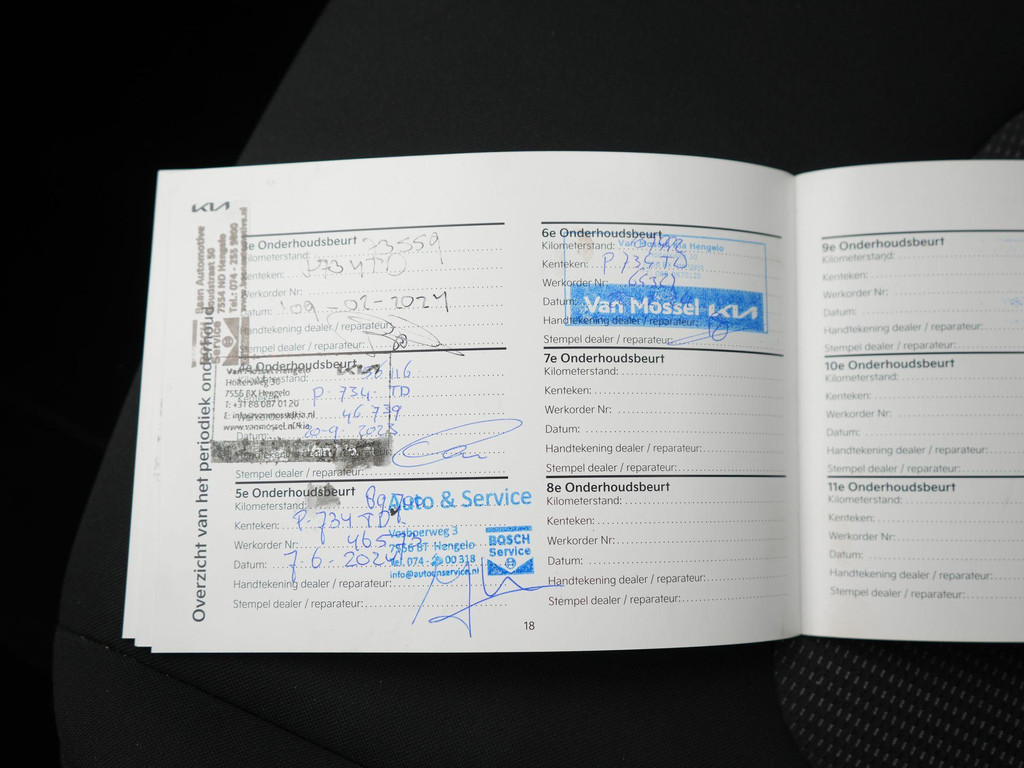 KIA
Overzicht van het periodiek onderhoud
Baan Automotive
7554 ND Hengelo
Tel.: 074 - 255 9800
e Onderhoudsbeurt
Kilometerstand: 23559
Kenteken: P734TD
Werkorder Nr:
Datum: 09-02-2021
Handtekening dealer / reparateur:
Stempel dealer / reparateur:
4e Onderhoudsbeurt
Van Mossel Hengelo
7556 BX Hengelo
T: +31 88 087 01 20
P-734-TD
46.739
Datum: 20-9-2023
Stempel dealer / reparateur:
5e Onderhoudsbeurt
Kilometerstand:
Kenteken: P-734-TD
Werkorder Nr: 46573
Datum: 7-6-2024
Handtekening dealer / reparateur:
Stempel dealer / reparateur:
Auto & Service
Vosboerweg 3
7556 BT Hengelo
BOSCH
Service
info@autoenservice.nl
6e Onderhoudsbeurt
Kilometerstand:
Kenteken: P-734-TD
Werkorder Nr:
Datum:
Handtekening dealer / reparateur:
Stempel dealer / reparateur:
Van Mossel KIA
7e Onderhoudsbeurt
Kilometerstand:
Kenteken:
Werkorder Nr:
Datum:
Handtekening dealer / reparateur:
Stempel dealer / reparateur:
8e Onderhoudsbeurt
Kilometerstand:
Kenteken:
Werkorder Nr:
Datum:
Handtekening dealer / reparateur:
Stempel dealer / reparateur:
18
9e Onderhoudsbeurt
Kilometerstand:
Kenteken:
Werkorder Nr:
Datum:
Handtekening dealer / reparateur:
Stempel dealer / reparateur:
10e Onderhoudsbeurt
Kilometerstand:
Kenteken:
Werkorder Nr:
Datum:
Handtekening dealer / reparateur:
Stempel dealer / reparateur:
11e Onderhoudsbeurt
Kilometerstand:
Kenteken:
Werkorder Nr:
Datum:
Handtekening dealer / reparateur:
Stempel dealer / reparateur: